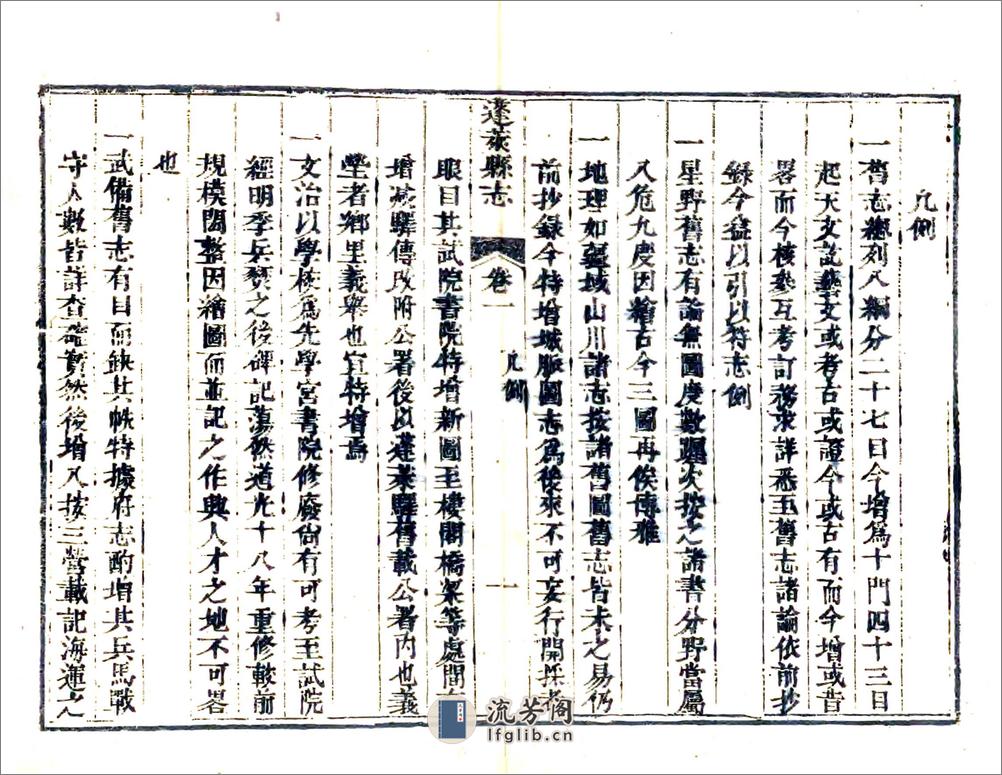 凡例
一舊志總列八綱分二十七目今增爲十門四十三目
起天文訖藝文或考古或證今或古有而今增或昔
畧而今核參互考訂務求詳悉至舊志諸論依前抄
錄今益以引以符志例
一星野舊志有論無圖度數躔次按之諸書分野當屬
入危九度因繪古今三圖再俟博雅
一地理如疆域山川諸志按諸舊圖舊志皆未之易仍
前抄錄今特增城脈圖志爲後來不可妄行開採者
蓬萊縣志
卷一
凡例
一
眼目其試院書院特增新圖至樓閣橋梁等處間有
增減驛傳改附公署後以蓬萊驛舊載公署內也義
塾者鄉里義舉也宜特增焉
一文治以學校爲先學宮書院修廢尙有可考至試院
經明季兵燹之後碑記蕩軼道光十八年重修較前
規模閎整因繪圖而並記之作興人才之地不可畧
也
一武備舊志有目而缺其帙特據府志酌增其兵馬戰
守人數皆詳查確實然後增入按三營載記海運之
流芳阁
lfglib.cn